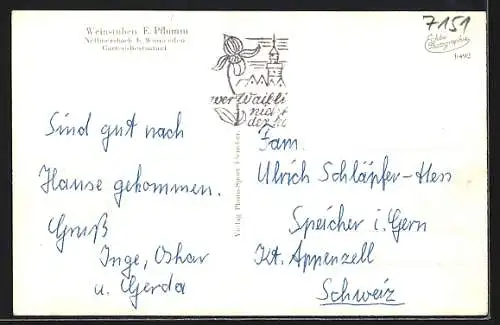 Weinstuben E. Pflumm
Nellmersbach b. Winnenden
Garten-Restaurant
7151
Echte
Photographie
wer Waibli
nicht
der h
Sind gut nach
Hause gekommen.
Gruß
Inge, Oskar
u. Gerda
Verlag Photo-Sport
Fam.
Ulrich Schläpfer-Hess
Speicher i. Gern
Kt. Appenzell
Schweiz